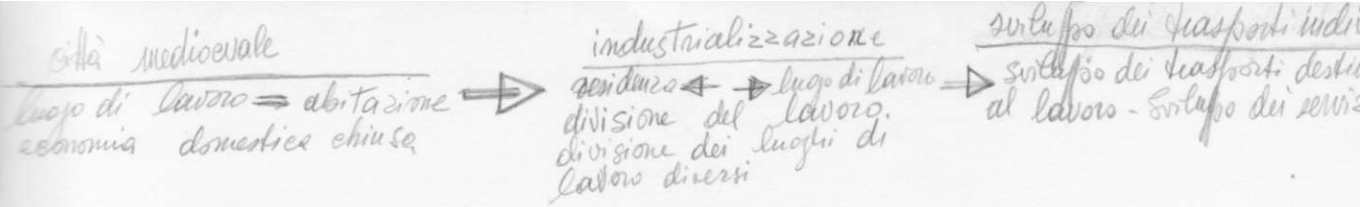 città medioevale
luogo di lavoro = abitazione
economia domestica chiusa
industrializzazione
residenza luogo di lavoro
divisione del lavoro.
divisione dei luoghi di
lavoro diversi
sviluppo dei trasporti indi
sviluppo dei trasporti desti
al lavoro - Sviluppo dei serviz